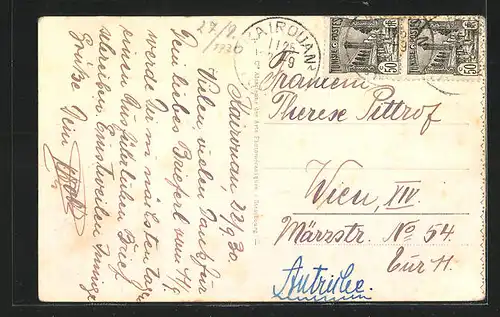 27/9.
1930
KAIROUAN
1125
-9
TUNISIE
POSTES
50c
50c
Kairouan, 22/9.30.
Vielen, vielen Dank für
Dein liebes Brieferl vom 4/9
werde Dir im nächsten Tage
einen ausführlichen Brief
schreiben. Einstweilen innige
Grüße Dein
Fräulein
Therese Pittrof
Wien, XIV.
Märzstr. No 54.
Tür 11.
Autriche.